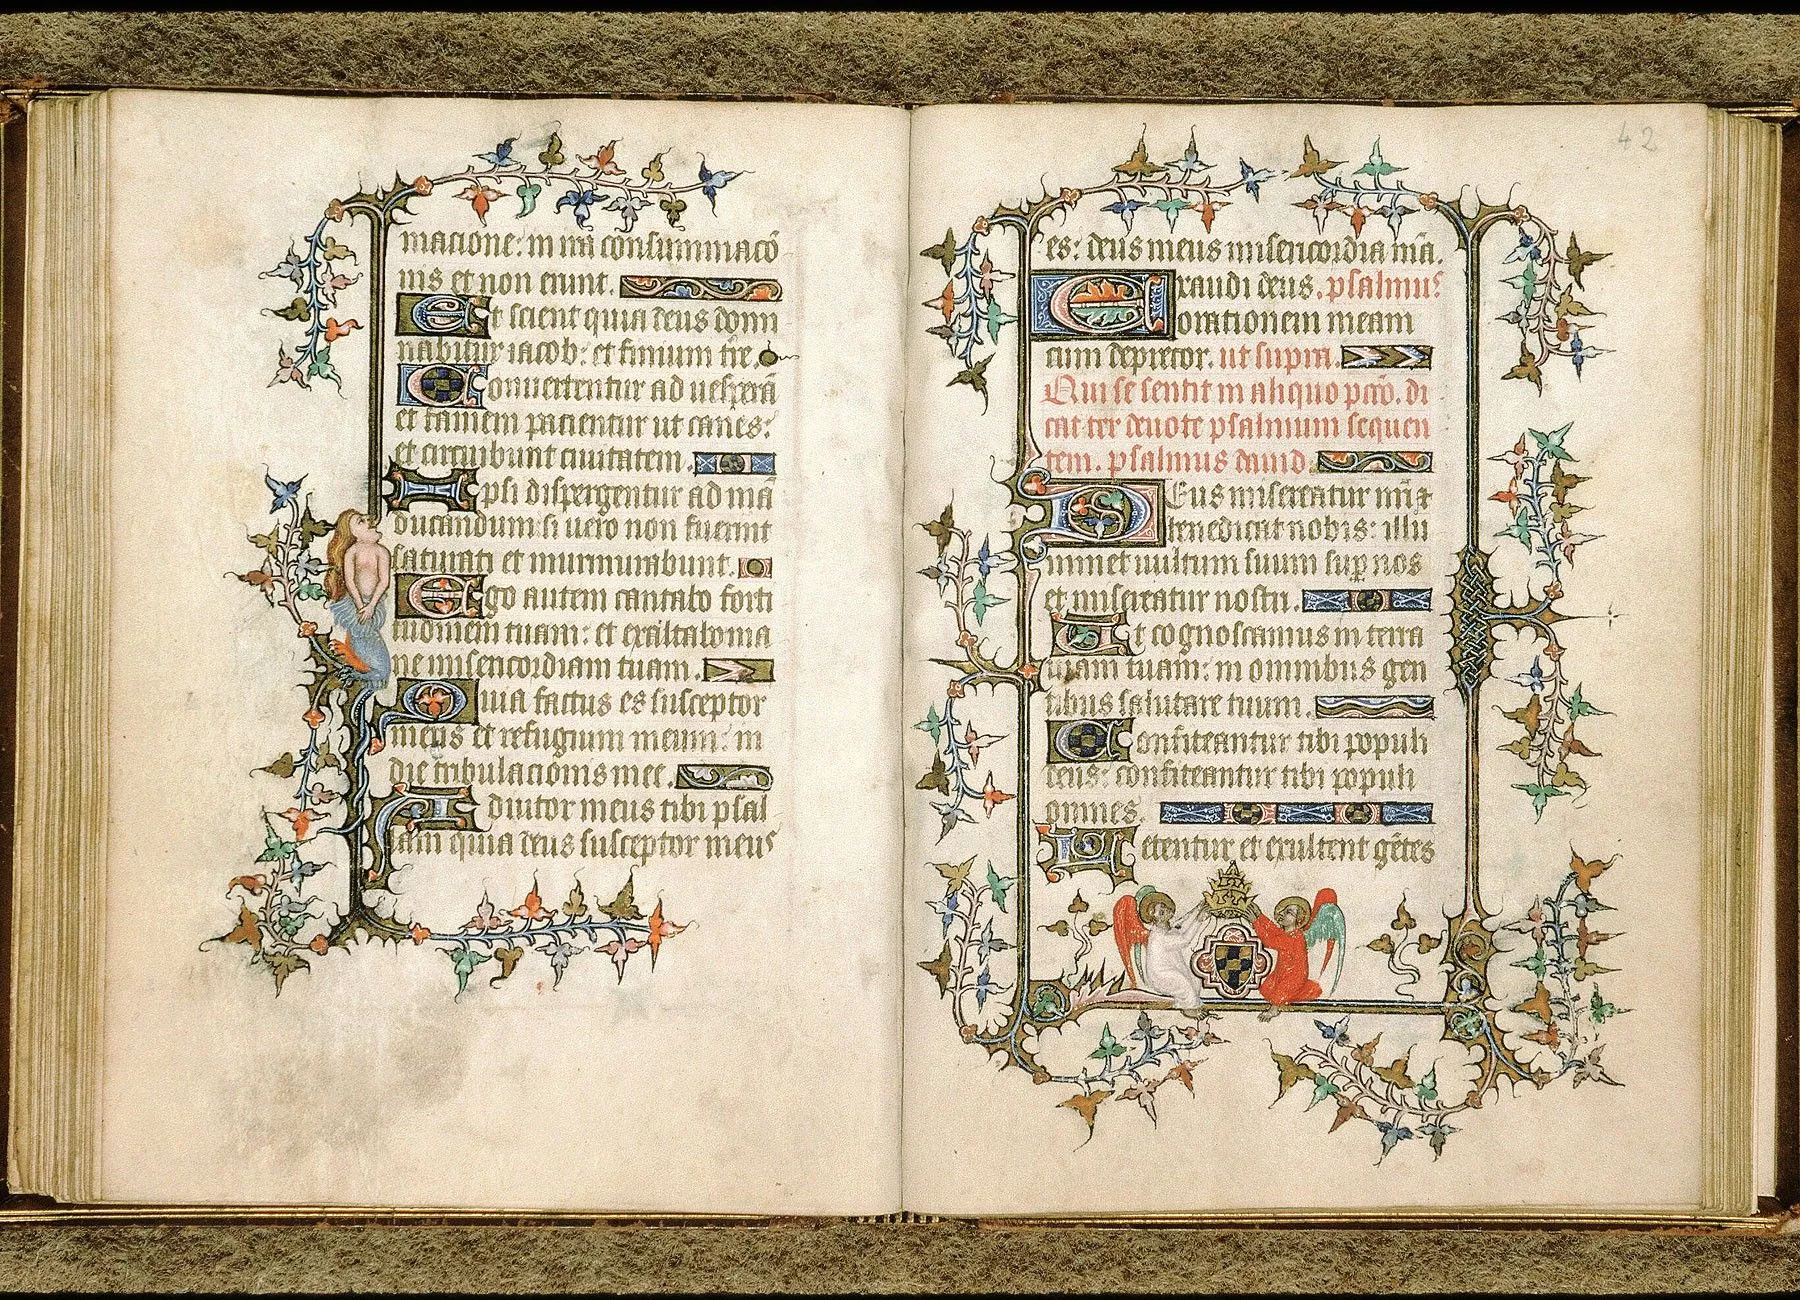 matione: in ira consummacō
nis et non erunt.
Et scient quia deus domi
nabitur iacob: et finium t̄re.
Conuertentur ad uesperā
et famem pacientur ut canes:
et circuibunt ciuitatem.
Ipsi dispergentur ad mā
ducandum: si uero non fuerint
saturati et murmurabunt.
Ego autem cantabo forti
tudinem tuam: et exaltabo ma
ne misericordiam tuam.
Quia factus es susceptor
meus et refugium meum: in
die tribulacionis mee.
Adiutor meus tibi psal
lam quia deus susceptor meus
42
es: deus meus misericordia mā.
Exaudi deus. psalmus
orationem meam
cum deprecor. ut supra.
Qui se sentit in aliquo pctō. di
cat ter deuote psalmum sequen
tem. psalmus dauid.
Deus misereatur nr̄i et
benedicat nobis: illu
minet uultum suum sup̱ nos
et misereatur nostri.
Et cognoscamus in terra
uiam tuam: in omnibus gen
tibus salutare tuum.
Confiteantur tibi populi
deus: confiteantur tibi populi
omnes.
Letentur et exultent gētes